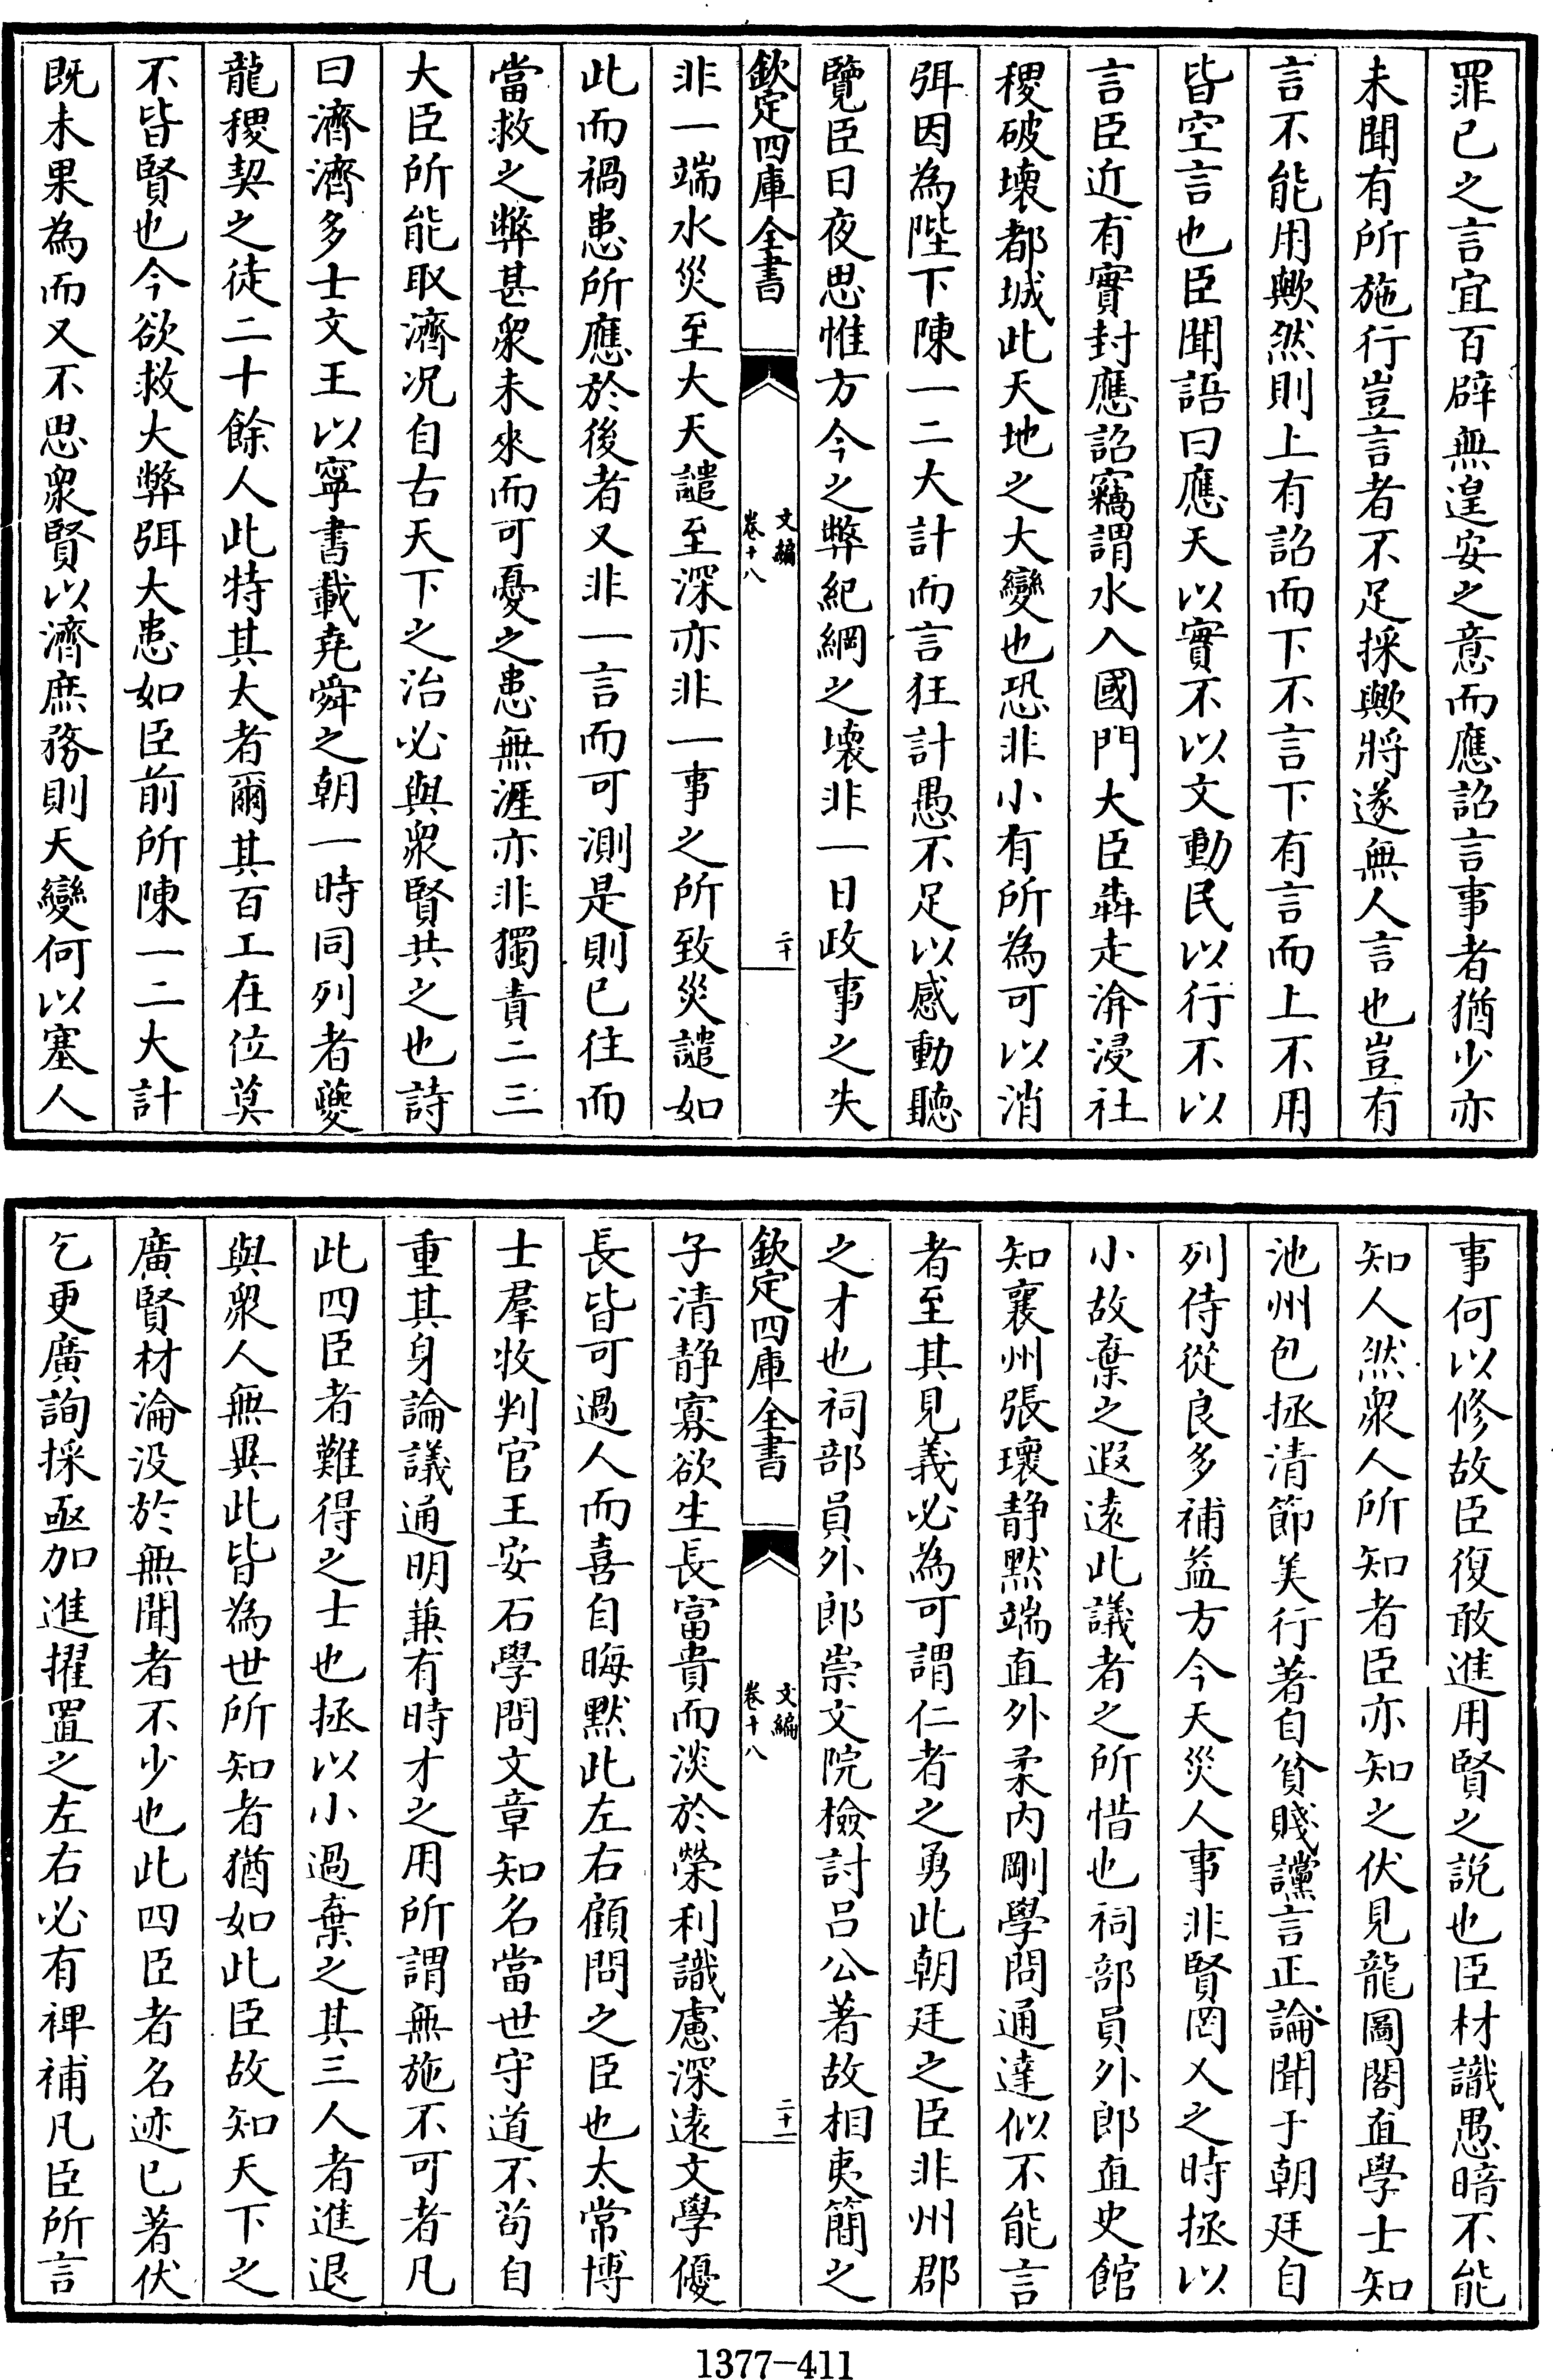 罪已之言宜百辟無遑安之意而應詔言事者猶少亦
未聞有所施行豈言者不足採歟將遂無人言也豈有
言不能用歟然則上有詔而下不言下有言而上不用
皆空言也臣聞語曰應天以實不以文動民以行不以
言臣近有實封應詔竊謂水入國門大臣犇走渰浸社
稷破壞都城此天地之大變也恐非小有所為可以消
弭因為陛下陳一二大計而言狂計愚不足以感動聽
覽臣日夜思惟方今之弊紀綱之壞非一日政事之失
欽定四庫全書
文編
卷十八
二十
非一端水災至大天譴至深亦非一事之所致災譴如
此而禍患所應於後者又非一言而可測是則已往而
當救之弊甚衆未來而可憂之患無涯亦非獨責二三
大臣所能取濟况自古天下之治必與衆賢共之也詩
曰濟濟多士文王以寧書載堯舜之朝一時同列者夔
龍稷契之徒二十餘人此特其大者爾其百工在位莫
不皆賢也今欲救大弊弭大患如臣前所陳一二大計
既未果為而又不思衆賢以濟庶務則天變何以塞人
事何以修故臣復敢進用賢之説也臣材識愚暗不能
知人然衆人所知者臣亦知之伏見龍圖閣直學士知
池州包拯清節美行著自貧賤讜言正論聞于朝廷自
列侍從良多補益方今天災人事非賢罔乂之時拯以
小故棄之遐逺此議者之所惜也祠部員外郎直史館
知襄州張瓌静黙端直外柔内剛學問通達似不能言
者至其見義必為可謂仁者之勇此朝廷之臣非州郡
之才也祠部員外郎崇文院檢討吕公著故相夷簡之
欽定四庫全書
文編
卷十八
二十一
子清静寡欲生長富貴而淡於榮利識慮深逺文學優
長皆可過人而喜自晦黙此左右顧問之臣也太常博
士羣牧判官王安石學問文章知名當世守道不茍自
重其身論議通明兼有時才之用所謂無施不可者凡
此四臣者難得之士也拯以小過棄之其三人者進退
與衆人無異此皆為世所知者猶如此臣故知天下之
廣賢材淪没於無聞者不少也此四臣者名迹已著伏
乞更廣詢採亟加進擢置之左右必有裨補凡臣所言
1377-411